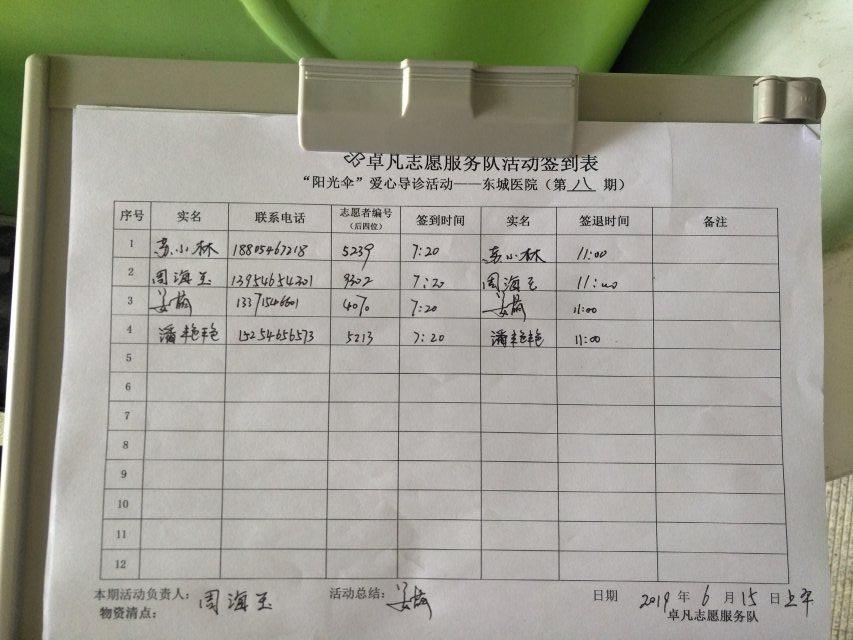 卓凡志愿服务队活动签到表
“阳光伞”爱心导诊活动——东城医院（第八期）
序号 实名 联系电话 志愿者编号（后四位） 签到时间 实名 签退时间 备注
1 苏小林 18805467218 5239 7:20 苏小林 11:00
2 周海玉 13954654201 9302 7:20 周海玉 11:00
3 13371546601 7:20 11:00
4 潘艳艳 15254656573 5213 7:20 潘艳艳 11:00
5
6
7
8
9
10
11
12
本期活动负责人：周海玉 活动总结： 日期 2019年6月15日上午
物资清点： 卓凡志愿服务队